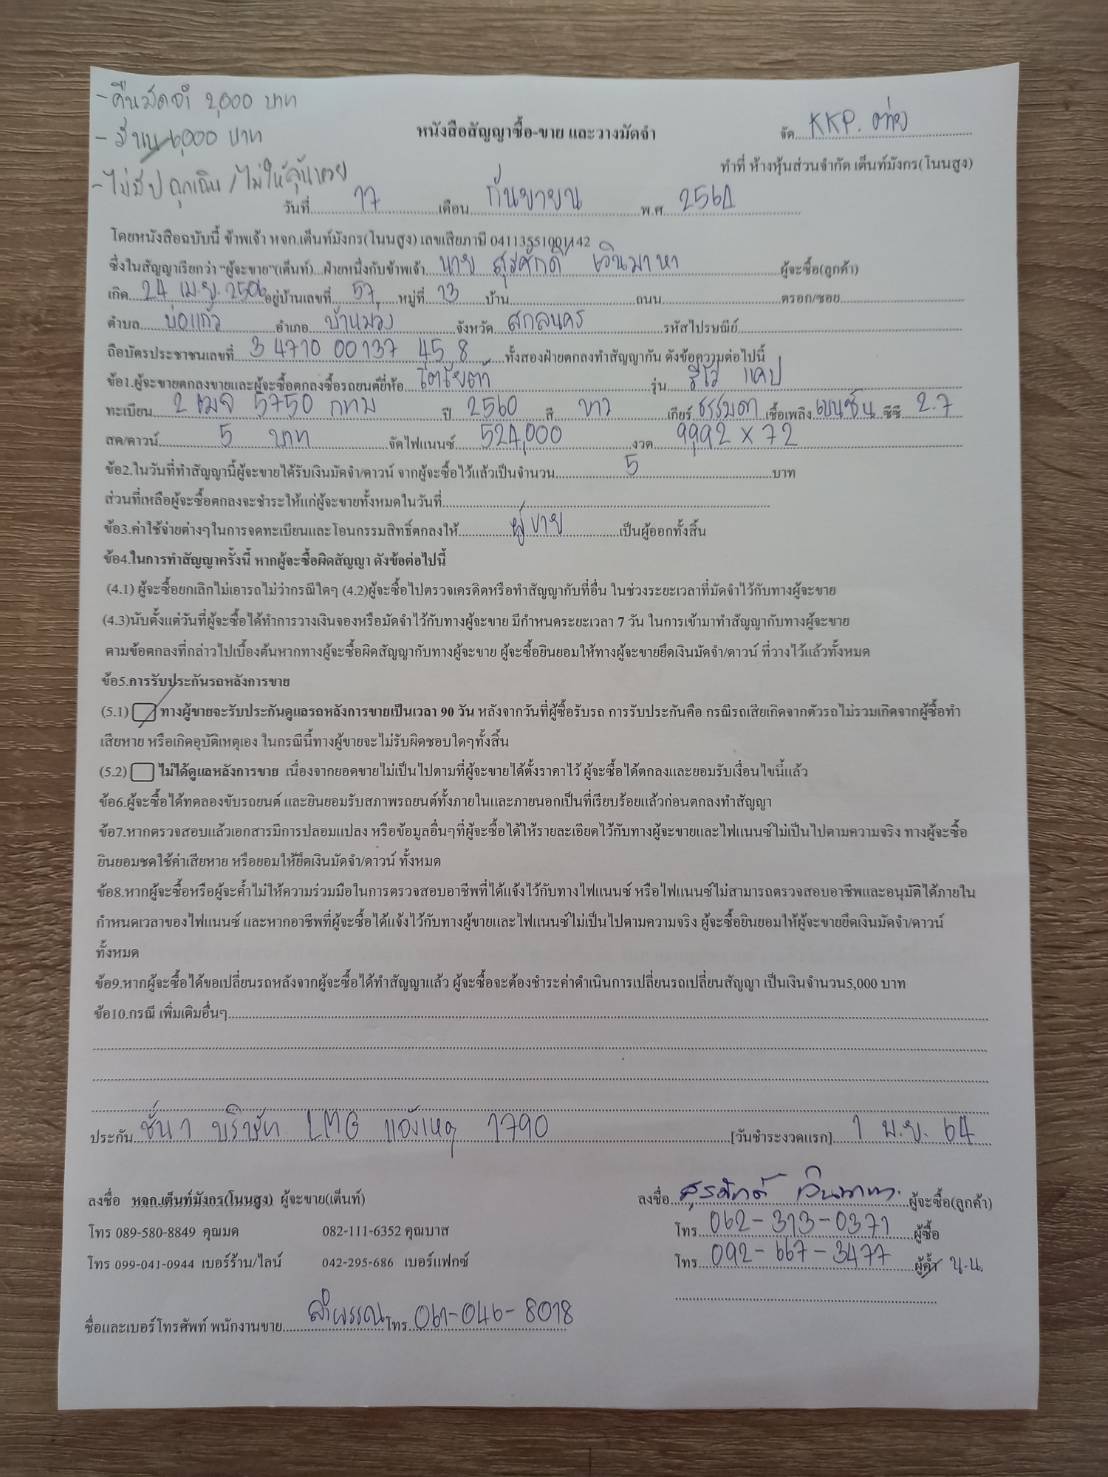 - คืนมัดจำ 2,000 บาท
- มี นน 6,000 บาท
- ไม่มีปลุกเงิน / ไม่ให้
หนังสือสัญญาซื้อ-ขาย และวางมัดจำ
จัด KKP. ต่าย
ทำที่ ห้างหุ้นส่วนจำกัด เต็นท์มังกร(โนนสูง)
วันที่ 17 เดือน กันยายน พ.ศ 2564
โดยหนังสือฉบับนี้ ข้าพเจ้า หจก.เต็นท์มังกร(โนนสูง) เลขเสียภาษี 0411355100142
ซึ่งในสัญญาเรียกว่า "ผู้จะขาย"(เต็นท์)...ฝ่ายหนึ่งกับข้าพเจ้า นาย สุรศักดิ์ เวินมาหา ผู้จะซื้อ(ลูกค้า)
เกิด 24 เม.ย. 2506 อยู่บ้านเลขที่ 57 หมู่ที่ 13 บ้าน ถนน ตรอก/ซอย
ตำบล บ่อแก้ว อำเภอ บ้านม่วง จังหวัด สกลนคร รหัสไปรษณีย์
ถือบัตรประชาชนเลขที่ 3 4710 00137 45 8 ทั้งสองฝ่ายตกลงทำสัญญากัน ดังข้อความต่อไปนี้
ข้อ1.ผู้จะขายตกลงขายและผู้จะซื้อตกลงซื้อรถยนต์ยี่ห้อ โตโยต้า รุ่น รีโว่ แคป
ทะเบียน 2 ฒจ 5750 กทม ปี 2560 สี ขาว เกียร์ ธรรมดา เชื้อเพลิง เบนซิน ซีซี 2.7
สด/ดาวน์ 5 บาท จัดไฟแนนซ์ 524,000 งวด 9,992 x 72
ข้อ2.ในวันที่ทำสัญญานี้ผู้จะขายได้รับเงินมัดจำ/ดาวน์ จากผู้จะซื้อไว้แล้วเป็นจำนวน 5 บาท
ส่วนที่เหลือผู้จะซื้อตกลงจะชำระให้แก่ผู้จะขายทั้งหมดในวันที่
ข้อ3.ค่าใช้จ่ายต่างๆในการจดทะเบียนและโอนกรรมสิทธิ์ตกลงให้ ผู้ขาย เป็นผู้ออกทั้งสิ้น
ข้อ4.ในการทำสัญญาครั้งนี้ หากผู้จะซื้อผิดสัญญา ดังข้อต่อไปนี้
(4.1) ผู้จะซื้อยกเลิกไม่เอารถไม่ว่ากรณีใดๆ (4.2)ผู้จะซื้อไปตรวจเครดิตหรือทำสัญญากับที่อื่น ในช่วงระยะเวลาที่มัดจำไว้กับทางผู้จะขาย
(4.3)นับตั้งแต่วันที่ผู้จะซื้อได้ทำการวางเงินจองหรือมัดจำไว้กับทางผู้จะขาย มีกำหนดระยะเวลา 7 วัน ในการเข้ามาทำสัญญากับทางผู้จะขาย
ตามข้อตกลงที่กล่าวไปเบื้องต้นหากทางผู้จะซื้อผิดสัญญากับทางผู้จะขาย ผู้จะซื้อยินยอมให้ทางผู้จะขายยึดเงินมัดจำ/ดาวน์ ที่วางไว้แล้วทั้งหมด
ข้อ5.การรับประกันรถหลังการขาย
(5.1) ทางผู้ขายจะรับประกันดูแลรถหลังการขายเป็นเวลา 90 วัน หลังจากวันที่ผู้ซื้อรับรถ การรับประกันคือ กรณีรถเสียเกิดจากตัวรถไม่รวมเกิดจากผู้ซื้อทำ
เสียหาย หรือเกิดอุบัติเหตุเอง ในกรณีนี้ทางผู้ขายจะไม่รับผิดชอบใดๆทั้งสิ้น
(5.2) ไม่ได้ดูแลหลังการขาย เนื่องจากยอดขายไม่เป็นไปตามที่ผู้จะขายได้ตั้งราคาไว้ ผู้จะซื้อได้ตกลงและยอมรับเงื่อนไขนี้แล้ว
ข้อ6.ผู้จะซื้อได้ทดลองขับรถยนต์ และยินยอมรับสภาพรถยนต์ทั้งภายในและภายนอกเป็นที่เรียบร้อยแล้วก่อนตกลงทำสัญญา
ข้อ7.หากตรวจสอบแล้วเอกสารมีการปลอมแปลง หรือข้อมูลอื่นๆที่ผู้จะซื้อได้ให้รายละเอียดไว้กับทางผู้จะขายและไฟแนนซ์ไม่เป็นไปตามความจริง ทางผู้จะซื้อ
ยินยอมชดใช้ค่าเสียหาย หรือยอมให้ยึดเงินมัดจำ/ดาวน์ ทั้งหมด
ข้อ8.หากผู้จะซื้อหรือผู้จะค้ำไม่ให้ความร่วมมือในการตรวจสอบอาชีพที่ได้แจ้งไว้กับทางไฟแนนซ์ หรือไฟแนนซ์ไม่สามารถตรวจสอบอาชีพและอนุมัติได้ภายใน
กำหนดเวลาของไฟแนนซ์ และหากอาชีพที่ผู้จะซื้อได้แจ้งไว้กับทางผู้ขายและไฟแนนซ์ไม่เป็นไปตามความจริง ผู้จะซื้อยินยอมให้ผู้จะขายยึดเงินมัดจำ/ดาวน์
ทั้งหมด
ข้อ9.หากผู้จะซื้อได้ขอเปลี่ยนรถหลังจากผู้จะซื้อได้ทำสัญญาแล้ว ผู้จะซื้อจะต้องชำระค่าดำเนินการเปลี่ยนรถเปลี่ยนสัญญา เป็นเงินจำนวน5,000 บาท
ข้อ10.กรณี เพิ่มเติมอื่นๆ
ประกัน ชั้น 1 บริษัท LMG แจ้งเหตุ 1790 [วันชำระงวดแรก] 1 พ.ย. 64
ลงชื่อ หจก.เต็นท์มังกร(โนนสูง) ผู้จะขาย(เต็นท์) ลงชื่อ สุรศักดิ์ เวินมาหา ผู้จะซื้อ(ลูกค้า)
โทร 089-580-8849 คุณมด 082-111-6352 คุณบาส โทร 062-313-0371 ผู้ซื้อ
โทร 099-041-0944 เบอร์ร้าน/ไลน์ 042-295-686 เบอร์แฟกซ์ โทร 092-667-3477 ผู้ค้ำ น.น.
ชื่อและเบอร์โทรศัพท์ พนักงานขาย ลำพรรณ โทร 061-046-8018